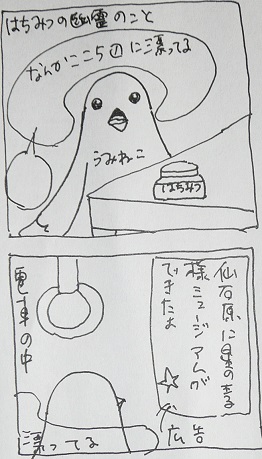 はちみつの幽霊のこと
なんかここら辺に漂ってる
うみねこ
はちみつ
電車の中
仙石原に星の王子
様ミュージアムが
できたよ
広告
漂ってる